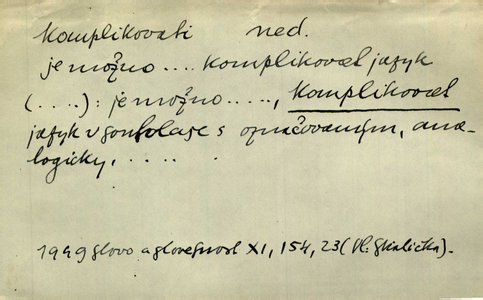 Komplikovati ned.
je možno .... komplikovat jazyk
(....): je možno ....., komplikovat
jazyk v souhlase s označovaným, ana-
logicky, .....
1949 Slovo a slovesnost XI, 154, 23 (Vl. Skalička).